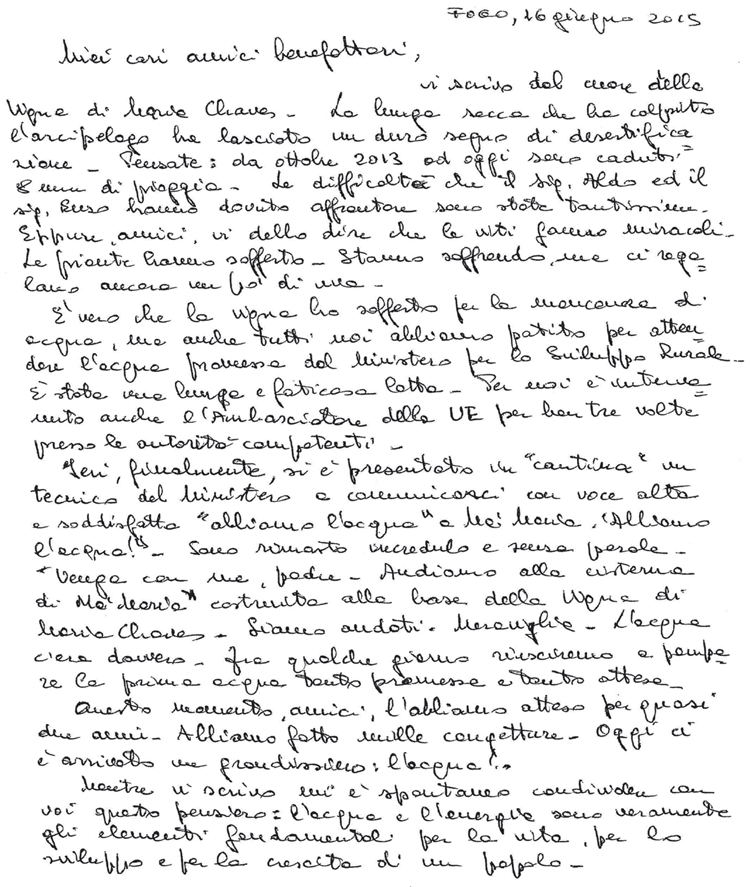 FOGO, 16 giugno 2015
Miei cari amici benefattori,
vi scrivo dal cuore della
Vigna di Maria Chaves - La lunga secca che ha colpito
l'arcipelago ha lasciato un duro segno di desertifica
zione - Pensate: da ottobre 2013 ad oggi sono caduti
8 mm di pioggia - Le difficoltà che il sig. Aldo ed il
sig. Enzo hanno dovuto affrontare sono state tantissime.
Eppure, amici, vi debbo dire che le viti fanno miracoli -
Le piante hanno sofferto - Stanno soffrendo, ma ci rega=
lano ancora un po' di uva -
È vero che la vigna ha sofferto per la mancanza di
acqua, ma anche tutti noi abbiamo patito per atten=
dere l'acqua promessa dal Ministero per lo Sviluppo Rurale -
È stata una lunga e faticosa lotta - Per noi è interve=
nuto anche l'Ambasciatore della UE per ben tre volte
presso le autorità competenti -
Ieri, finalmente, si è presentato in "cantina" un
tecnico del Ministero a comunicarci con voce alta
e soddisfatta "abbiamo l'acqua" a Mai Maria, "Abbiamo
l'acqua!" - Sono rimasto incredulo e senza parole -
"Venga con me, padre - Andiamo alla cisterna
di Mai Maria" costruita alla base della Vigna di
Maria Chaves - Siamo andati - Meraviglia - L'acqua
c'era davvero - Fra qualche giorno riusciremo a pompa=
re la prima acqua tanto promessa e tanto attesa -
Questo momento, amici, l'abbiamo atteso per quasi
due anni - Abbiamo fatto mille congetture - Oggi ci
è arrivato un grandissimo: l'acqua!..
Mentre vi scrivo mi è spontaneo condividere con
voi questo pensiero: l'acqua e l'energia sono veramente
gli elementi fondamentali per la vita, per lo
sviluppo e per la crescita di un popolo -